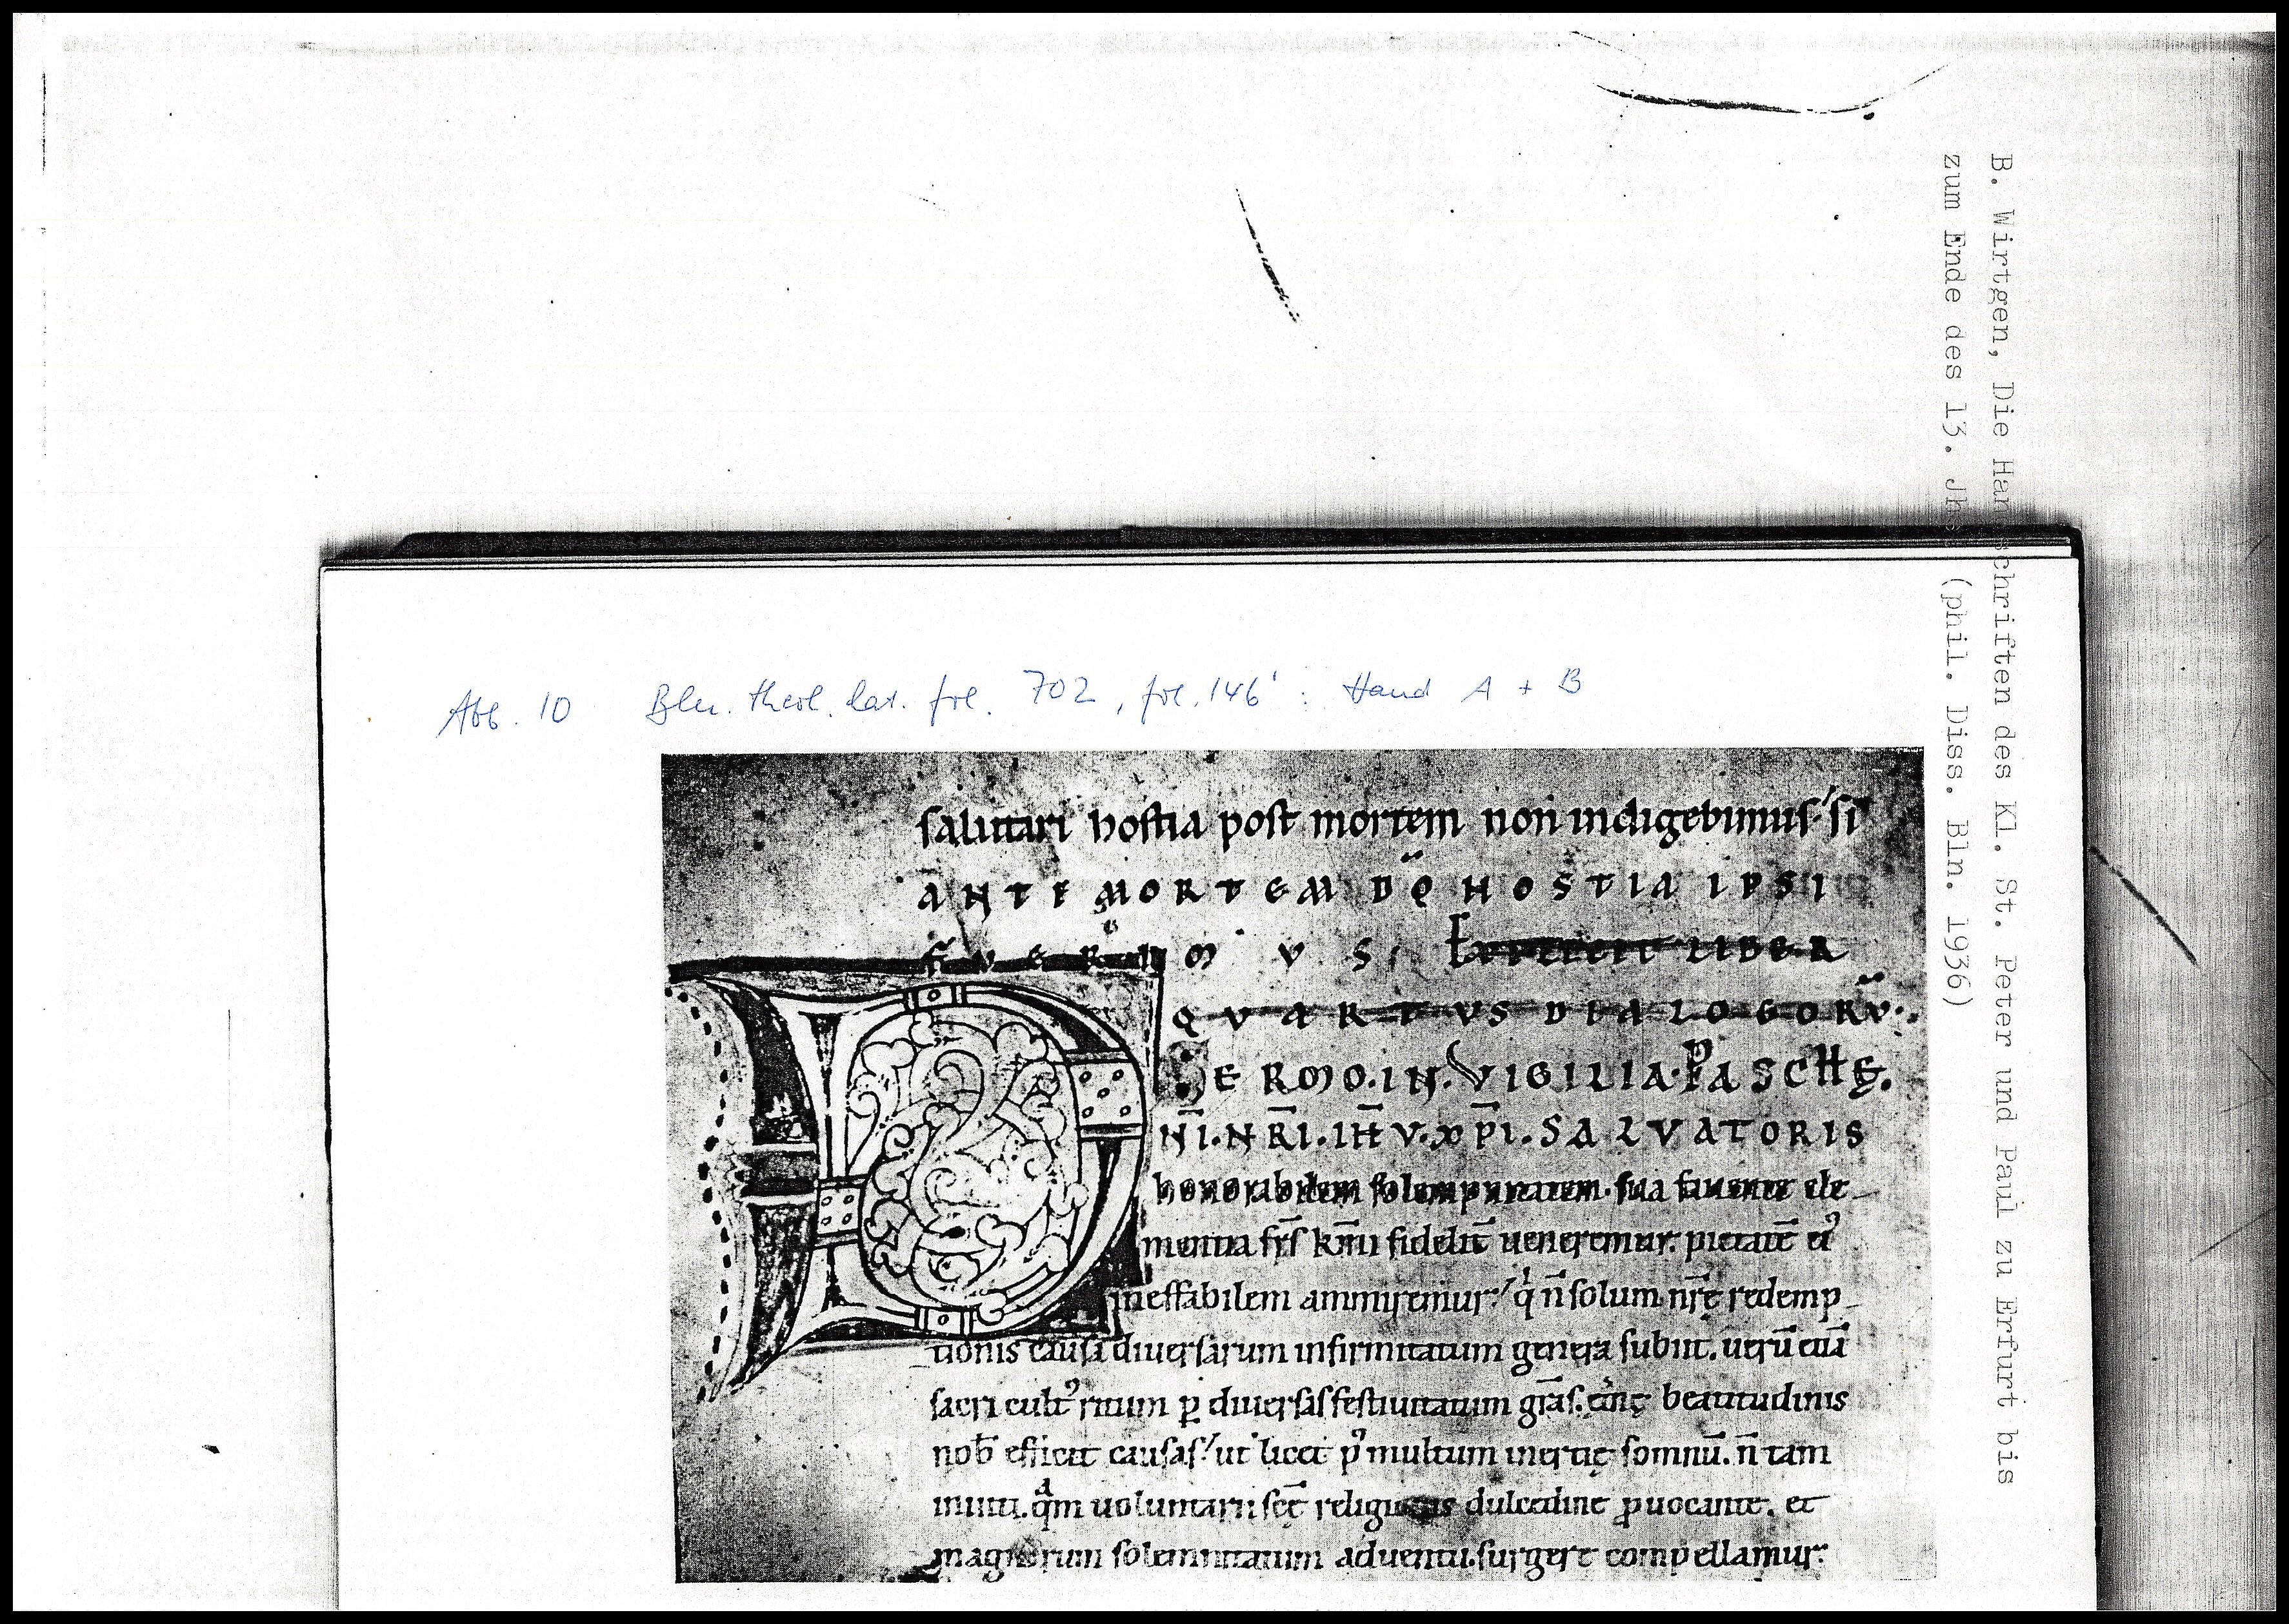 B. Wirtgen, Die Handschriften des Kl. St. Peter und Paul zu Erfurt bis
zum Ende des 13. Jhs (phil. Diss. Bln. 1936)
Abb. 10 Bln. theol. lat. fol. 702, fol. 146' : Hand A + B
salutari hostia post mortem non indigebimus. si
ANTE MORTEM DO̅ HOSTIA IPSI
FVERIMVS. EXPLICIT LIBER
QVARTVS DIALOGORV̅.
SERMO. IN. VIGILIA. PASCHĘ.
DN̅I. NR̅I. IH̅V. XP̅I. SALVATORIS
honorabilem solempnitatem. sua fauente cle
mentia fr̅s kmi̅ fidelit̅ ueneremur. pietate̅ eiꝰ
ineffabilem ammiremur. q n̅ solum nr̅ę redemp
tionis causa diuersarum infirmitatum genera subiit. ueru̅ etia̅
sacri cultꝰ ritum ꝑ diuersas festiuitatum gr̅as. beatitudinis
nob̅ efficit causas. ut licet multum inertię somnu̅. n̅ tam
inuiti. qͣm uoluntarii sc̅ę religionis dulcedine ꝓuocante. et
magnorum solemnitatum aduentu. surgere compellamur.